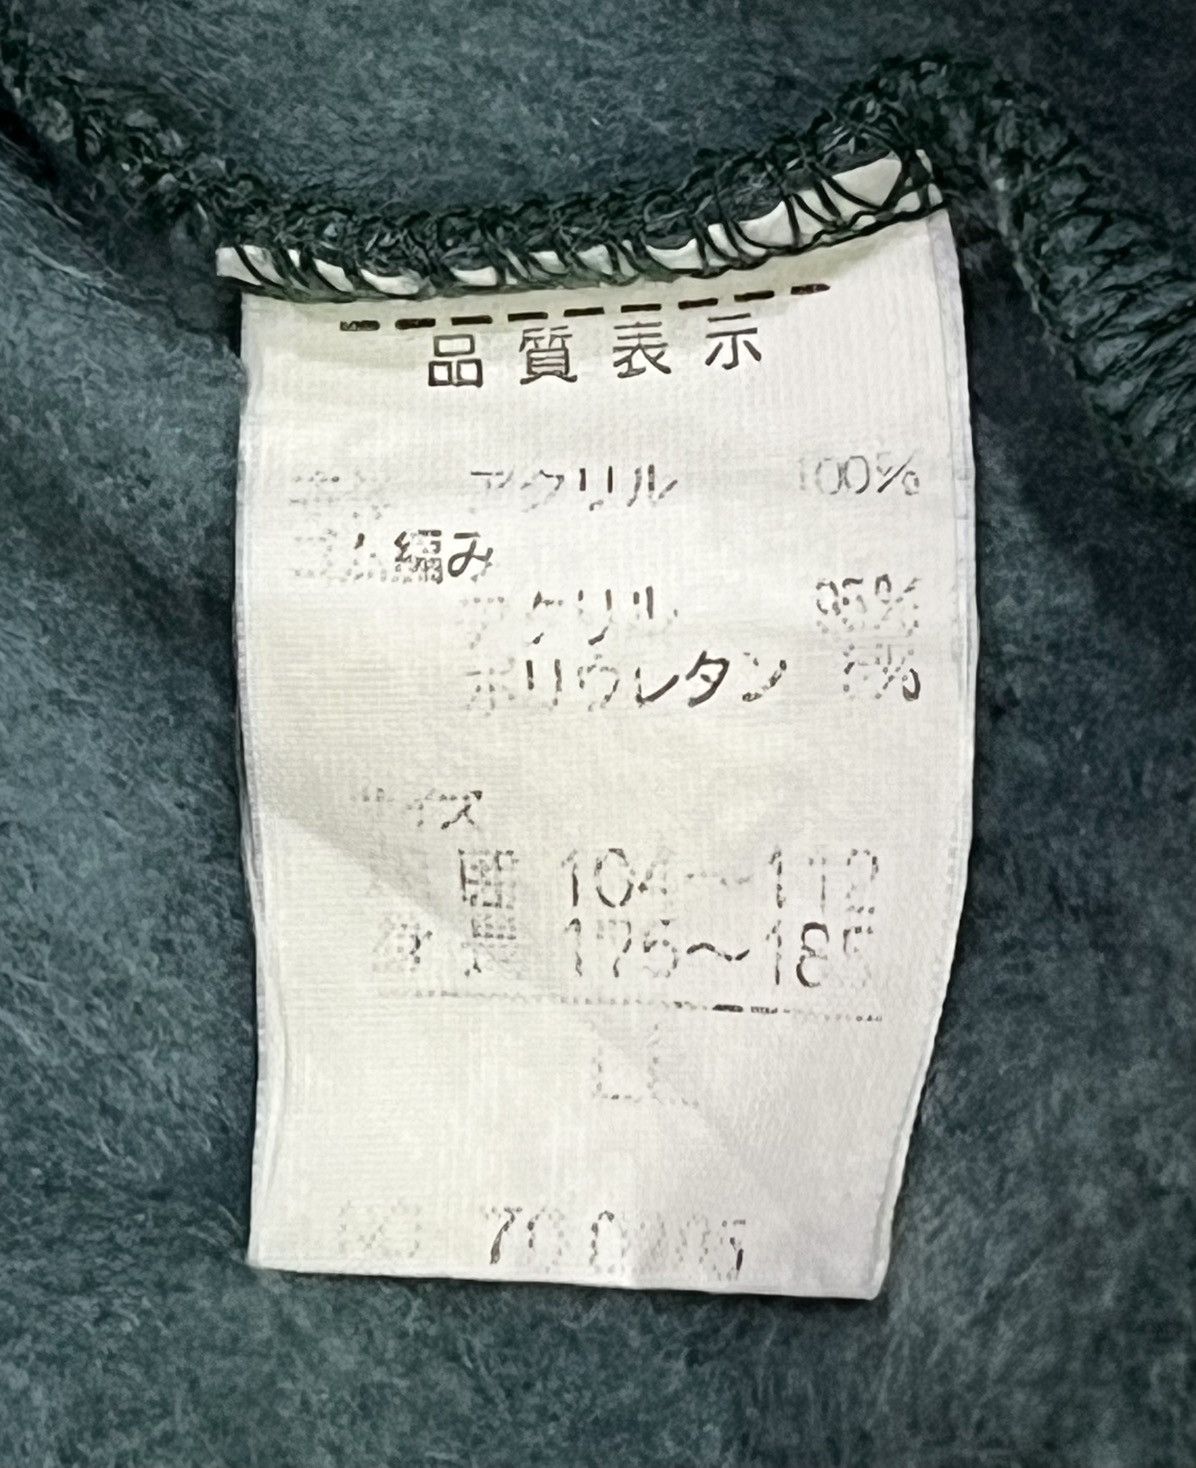 品質表示
アクリル 100%
ゴム編み
アクリル 95%
ポリウレタン 5%
サイズ
胸囲 104〜112
身長 175〜185
LL